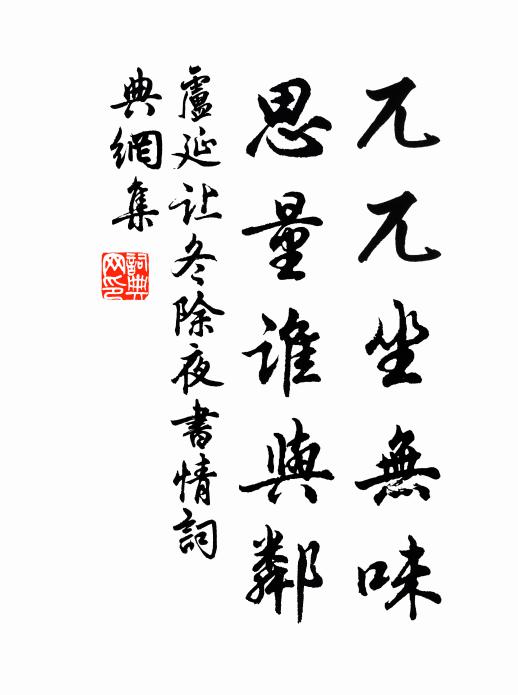 兀兀坐無味
思量誰與鄰
盧延让冬除夜書情詞
典網集
詞典网印